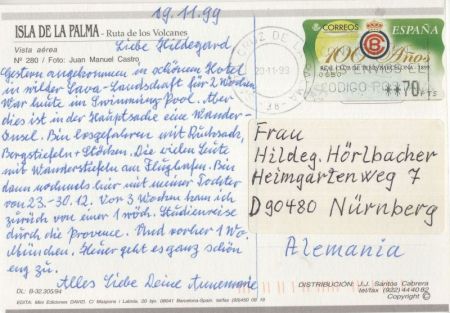 19.11.99
ISLA DE LA PALMA - Ruta de los Volcanes
Vista aérea
Nº 280 / Foto: Juan Manuel Castro
Liebe Hildegard
Gestern angekommen in schönem Hotel
in wilder Lava-Landschaft für 2 Wochen
War heute im Swimming Pool. Aber
dies ist in der Hauptsache eine Wander-
Insel. Bin losgefahren mit Rucksack,
Bergstiefeln + Stöcken. Die vielen Leute
mit Wanderstiefeln am Flughafen. Bin
dann nochmals hier mit meiner Tochter
von 23.-30.12. Vor 3 Wochen kam ich
zurück von einer 1 wöch. Studienreise
durch die Provence. Und vorher 1 Wo.
München. Heuer geht es ganz schön
eng zu.
Alles Liebe Deine Annemarie
CORREOS
ESPAÑA
100 Años
REAL CLUB DE TENIS BARCELONA 1899
CODIGO PO
**70 PTS
CRUZ DE
20-11-99
38
Frau
Hildeg. Hörlbacher
Heimgartenweg 7
D 90480 Nürnberg
Alemania
DL: B-32.305/94
EDITA: Mini Ediciones DAVID. 08041 Barcelona-Spain.
DISTRIBUCION: J.J. Santos Cabrera
tel/fax (922) 44 40 82
Copyright ©